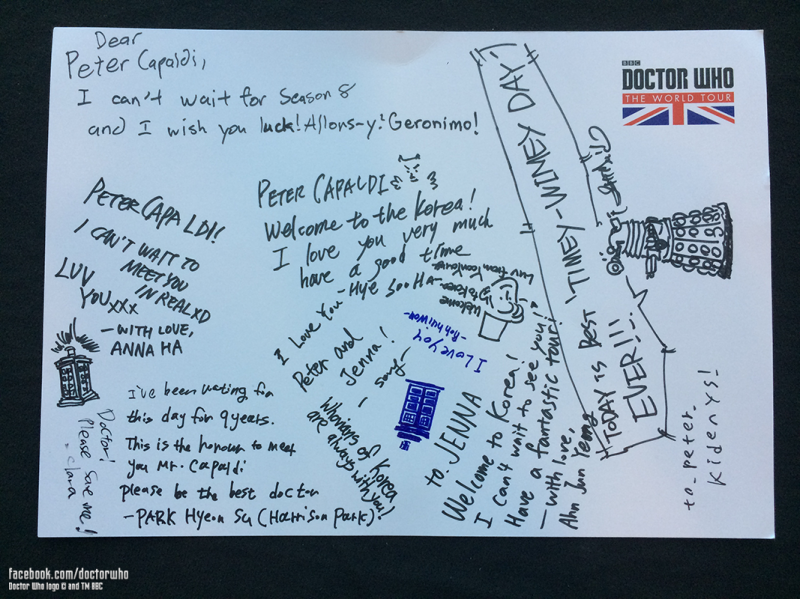 Dear
Peter Capaldi,
I can't wait for Season 8
and I wish you luck! Allons-y! Geronimo!
BBC
DOCTOR WHO
THE WORLD TOUR
PETER CAPALDI!
I CAN'T WAIT TO
MEET YOU
IN REAL XD
LUV
YOU xxx
- WITH LOVE,
ANNA HA
PETER CAPALDI
Welcome to the Korea!
I love you very much
have a good time
- Hye Soo HA -
Welcome
to Korea
Luv from
I Love You
Peter and
Jenna!
Whovians of Korea
are always with you!
I Love you
TODAY IS BEST 'TIMEY-WIMEY DAY'
EVER!!!
to JENNA
Welcome to Korea!
I can't wait to see you!
Have a fantastic tour!
- with love,
Ahn Jun Yeong
Doctor!
Please save me!
- clara
I've been wating for
this day for 9 years.
This is the honour to meet
you Mr. Capaldi
please be the best doctor
- PARK Hyeon Su (Harrison Park)
to. peter.
kidenys!
facebook.com/doctorwho
Doctor Who logo © and TM BBC